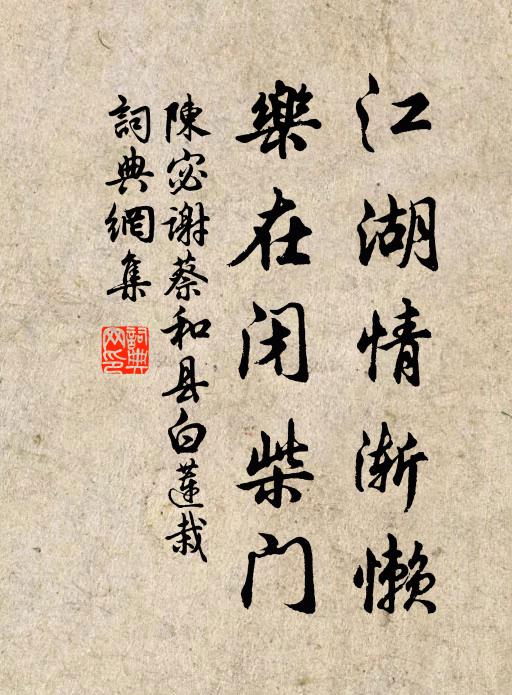 江湖情渐懒
樂在闭柴门
陳宓谢蔡和县白蓮栽
詞典網集
詞典网印